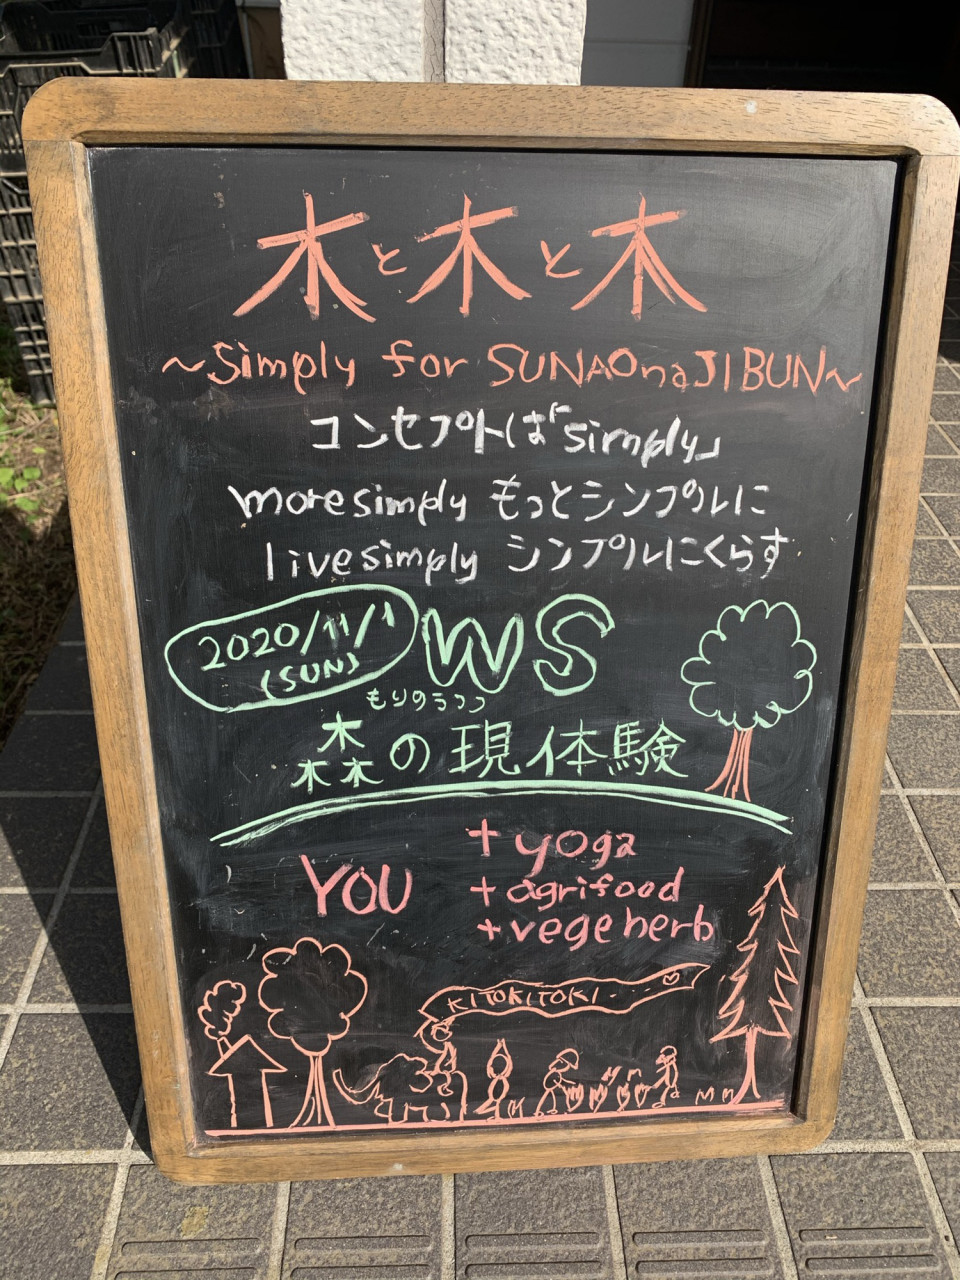 木と木と木
～Simply for SUNAOnaJIBUN～
コンセプトは「simply」
more simply もっとシンプルに
live simply シンプルにくらす
2020/11/1
(SUN)
WS
もりのうつつ
森の現体験
YOU
+yoga
+agrifood
+vege herb
KITOKITOKI...♡